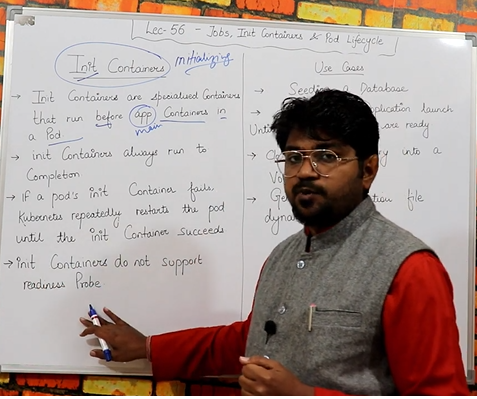 Lec-56 - Jobs, Init Containers & Pod Lifecycle
Init Containers initializing
→ Init Containers are specialised Containers
that run before app Containers in
main
a Pod
→ init Containers always run to
Completion
→ if a pod's init Container fails,
Kubernetes repeatedly restarts the pod
until the init Container succeeds
→ init Containers do not support
readiness Probe
Use Cases
→ Seeding a Database
→ application launch
Until are ready
→ into a
→ file